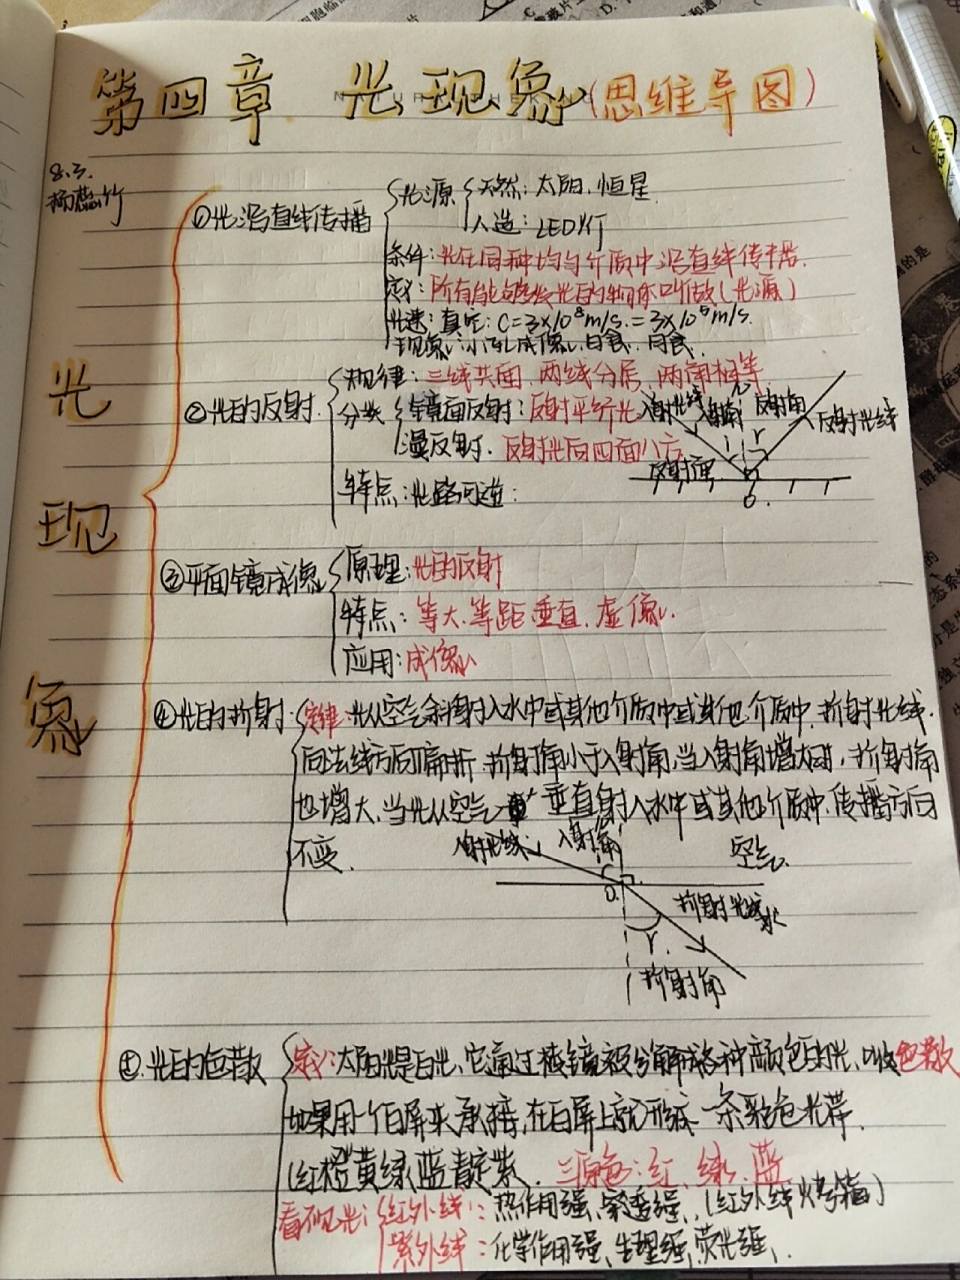 第四章 光现象(思维导图)
8.3.
光现象
①光沿直线传播
光源 天然:太阳.恒星
人造:LED灯
条件:光在同种均匀介质中沿直线传播.
定义:所有能够发光的物体叫做(光源)
光速:真空:C=3×10⁸m/s.=3×10⁵m/s.
现象:小孔成像,日食.月食.
②光的反射.
规律:三线共面,两线分居,两角相等
分类 镜面反射:反射平行光
漫反射.反射光向四面八方
入射光线 入射角 N 反射角
反射光线
i r
反射面
O.
特点:光路可逆:
③平面镜成像
原理:光的反射
特点:等大.等距.垂直.虚像.
应用:成像
④光的折射.
定律:光从空气斜射入水中或其他介质中或其他介质中,折射光线.
向法线方向偏折.折射角小于入射角,当入射角增大时,折射角
也增大.当光从空气 垂直射入水中或其他介质中.传播方向
不变.
入射光线 入射角 空气.
O. 折射光线 水
r.
折射角
⑤.光的色散
定义:太阳光是白光,它通过棱镜被分解成各种颜色的光,叫做色散
如果用一个白屏来承接,在白屏上就形成一条彩色光带.
(红橙黄绿蓝靛紫. 三原色:红,绿,蓝
看不见光:红外线:热作用强,穿透强,(红外线烤箱)
紫外线:化学作用强,生理强,荧光强,